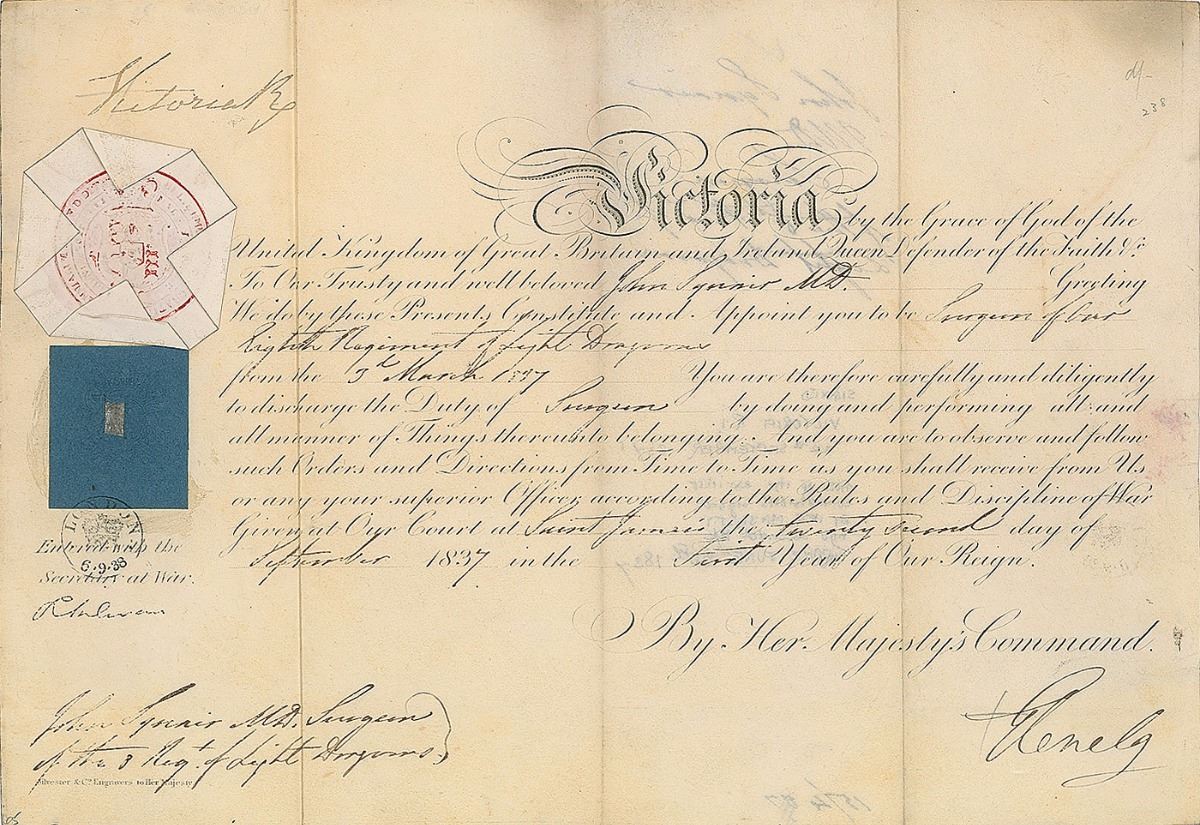 Victoria R
Victoria by the Grace of God of the
United Kingdom of Great Britain and Ireland Queen Defender of the Faith &c
To Our Trusty and well beloved John Squair MD. Greeting
We do by these Presents, Constitute and Appoint you to be Surgeon of Our
Eighth Regiment of Light Dragoons
from the 3d March 1837 You are therefore carefully and diligently
to discharge the Duty of Surgeon by doing and performing all and
all manner of Things thereunto belonging. And you are to observe and follow
such Orders and Directions from Time to Time as you shall receive from Us
or any your superior Officer, according to the Rules and Discipline of War
Given at Our Court at Saint James's the twenty second day of
September 1837 in the First Year of Our Reign.
By Her Majesty's Command.
Glenelg
LONDON
5.9.38
Entered with the
Secretary at War.
John Squair MD. Surgeon
of the 8 Regt. of Light Dragoons
Silvester & Co. Engravers to Her Majesty
238